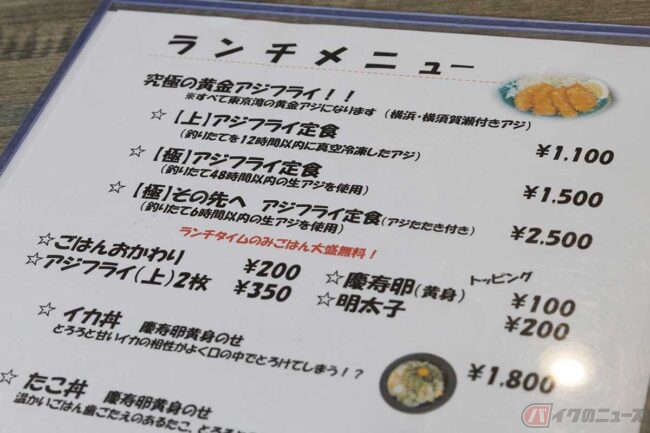 ランチメニュー
究極の黄金アジフライ！！
※すべて東京湾の黄金アジになります（横浜・横須賀瀬付きアジ）
☆【上】アジフライ定食 ¥1.100
（釣りたてを12時間以内に真空冷凍したアジ）
☆【極】アジフライ定食 ¥1.500
（釣りたて48時間以内の生アジを使用）
☆【極】その先へ アジフライ定食（アジたたき付き） ¥2.500
（釣りたて6時間以内の生アジを使用）
ランチタイムのみごはん大盛無料！
☆ごはんおかわり ¥200
☆アジフライ（上）2枚 ¥350
トッピング
☆慶寿卵（黄身） ¥100
☆明太子 ¥200
☆イカ丼 慶寿卵黄身のせ ¥1.800
とろろと甘いイカの相性がよく口の中でとろけてしまう！？
☆たこ丼 慶寿卵黄身のせ
温かいごはん歯ごたえのあるたこ、とろ
バイクのニュース